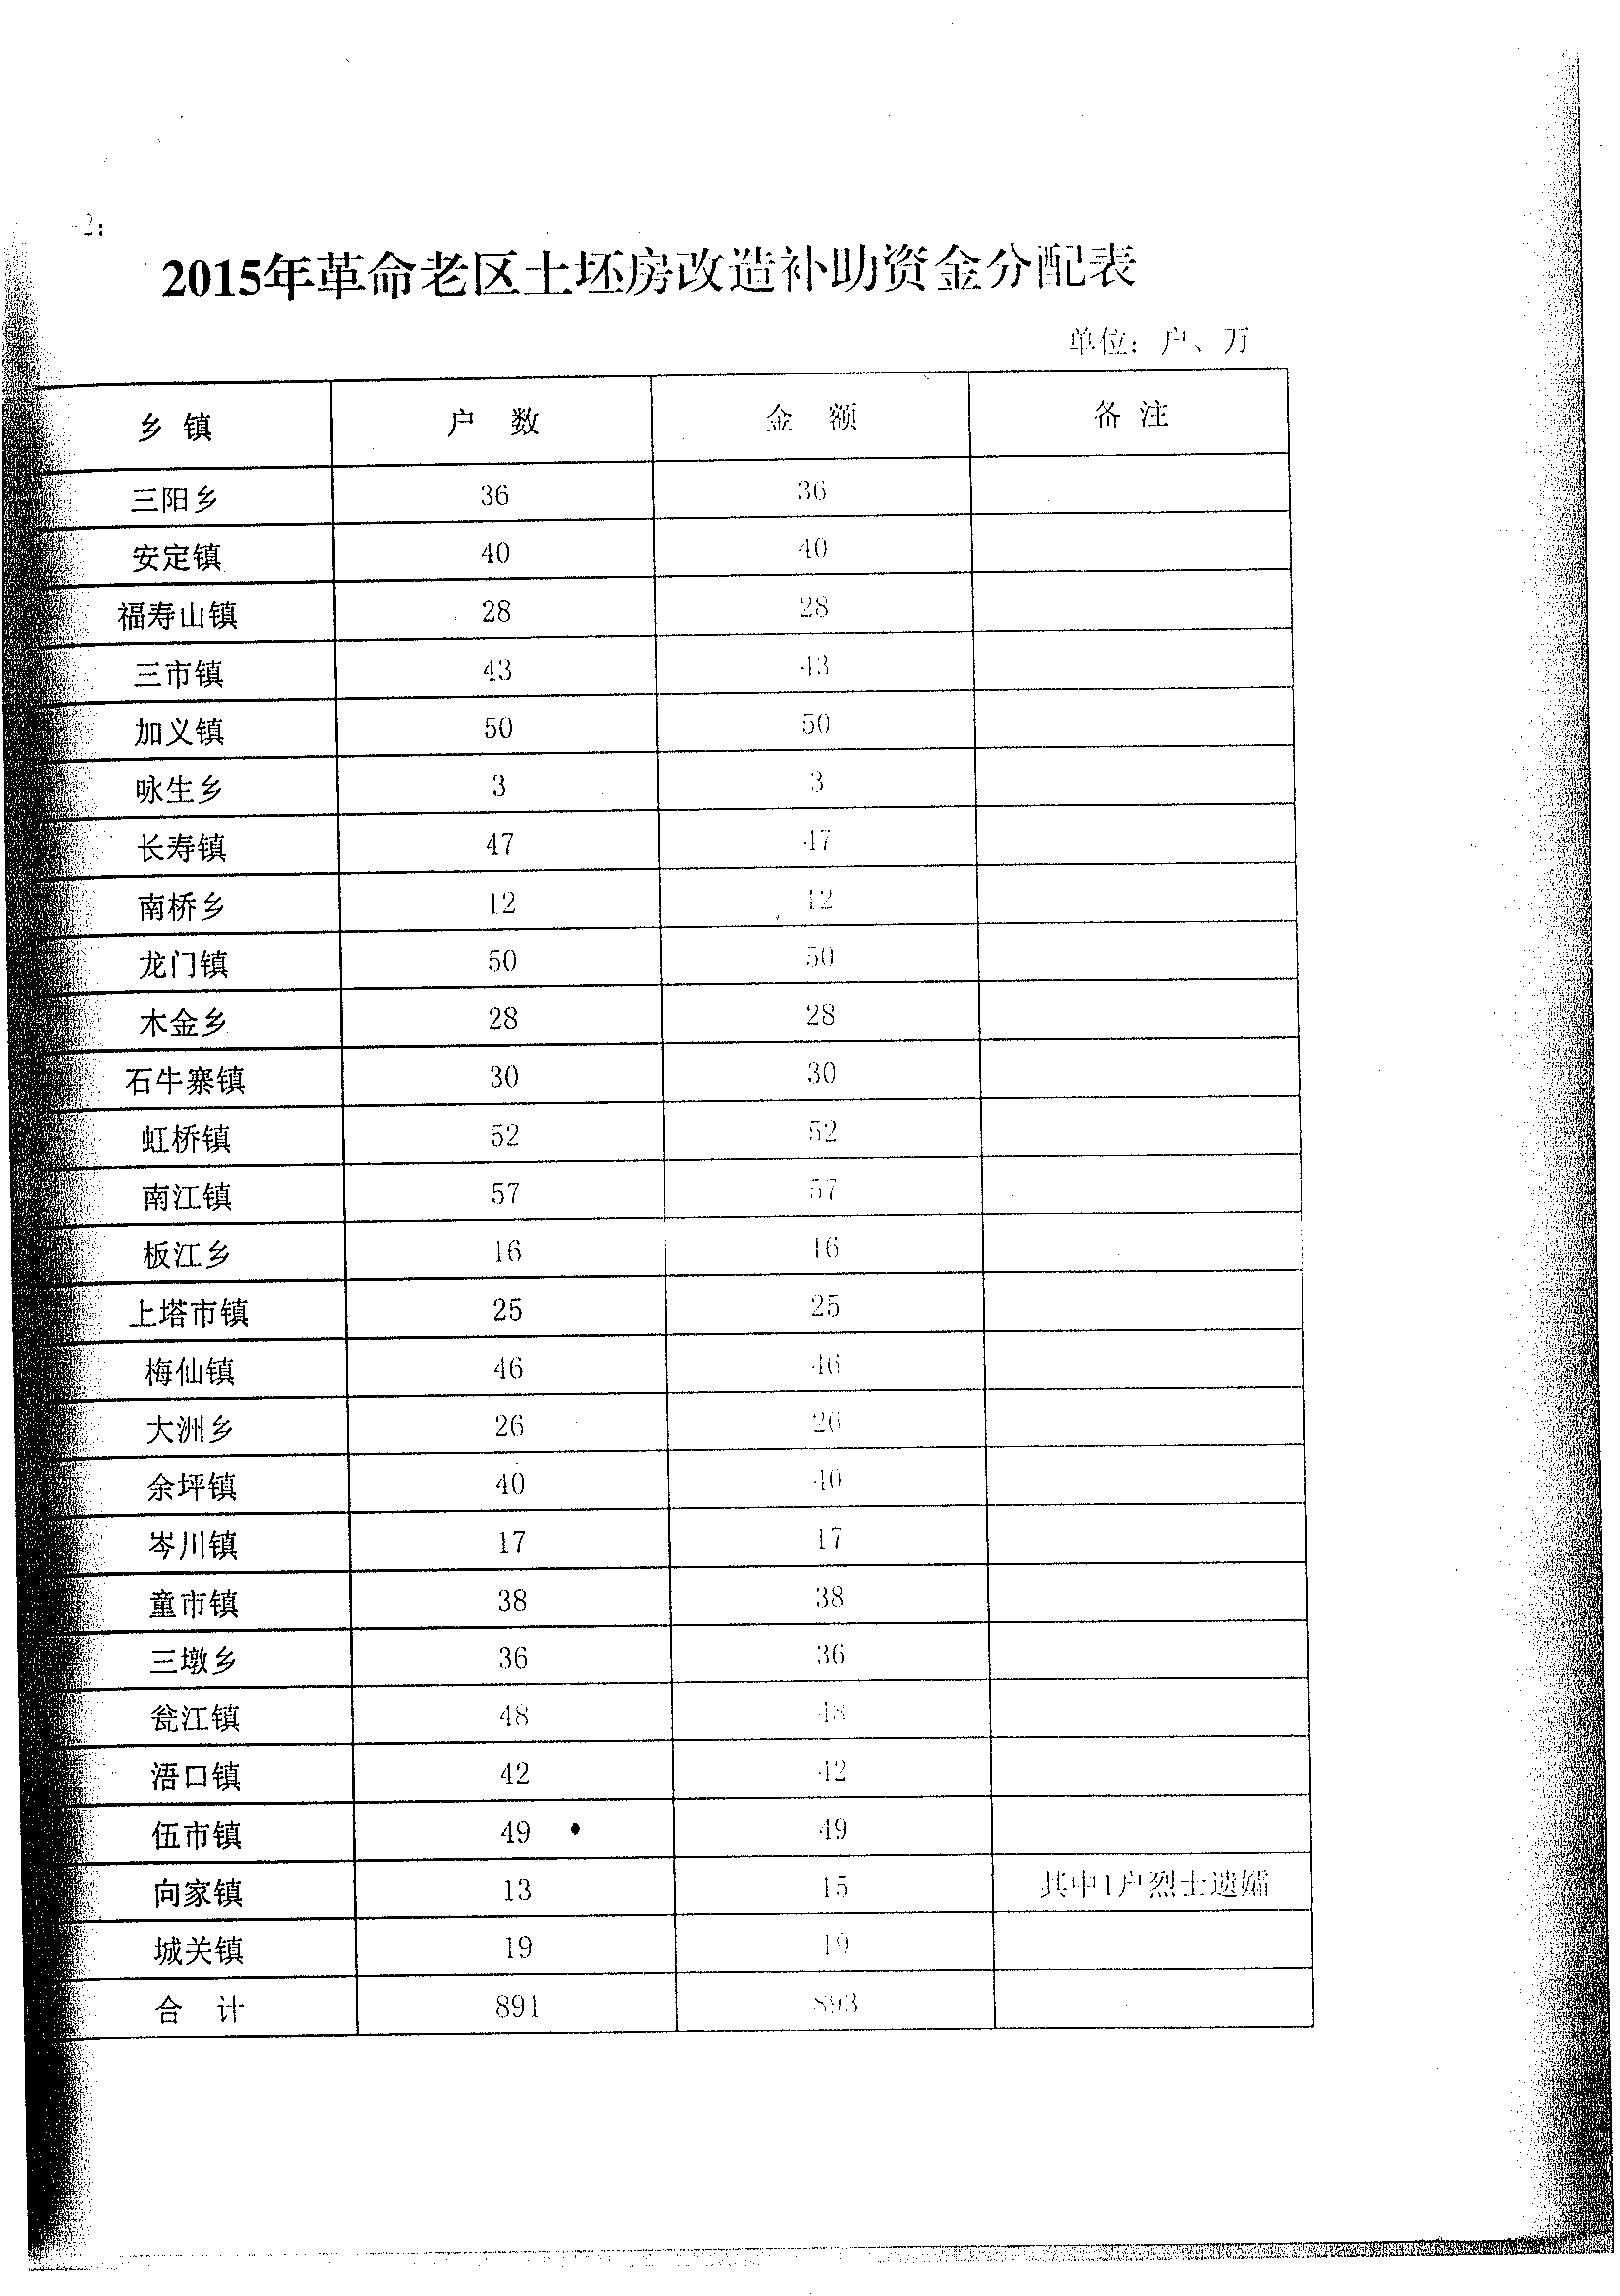 2:
2015年革命老区土坯房改造补助资金分配表
单位：户、万
乡 镇 户 数 金 额 备 注
三阳乡 36 36
安定镇 40 40
福寿山镇 28 28
三市镇 43 43
加义镇 50 50
咏生乡 3 3
长寿镇 47 47
南桥乡 12 12
龙门镇 50 50
木金乡 28 28
石牛寨镇 30 30
虹桥镇 52 52
南江镇 57 57
板江乡 16 16
上塔市镇 25 25
梅仙镇 46 46
大洲乡 26 26
余坪镇 40 40
岑川镇 17 17
童市镇 38 38
三墩乡 36 36
瓮江镇 48 48
浯口镇 42 42
伍市镇 49 49
向家镇 13 15 其中1户烈士遗孀
城关镇 19 19
合 计 891 893